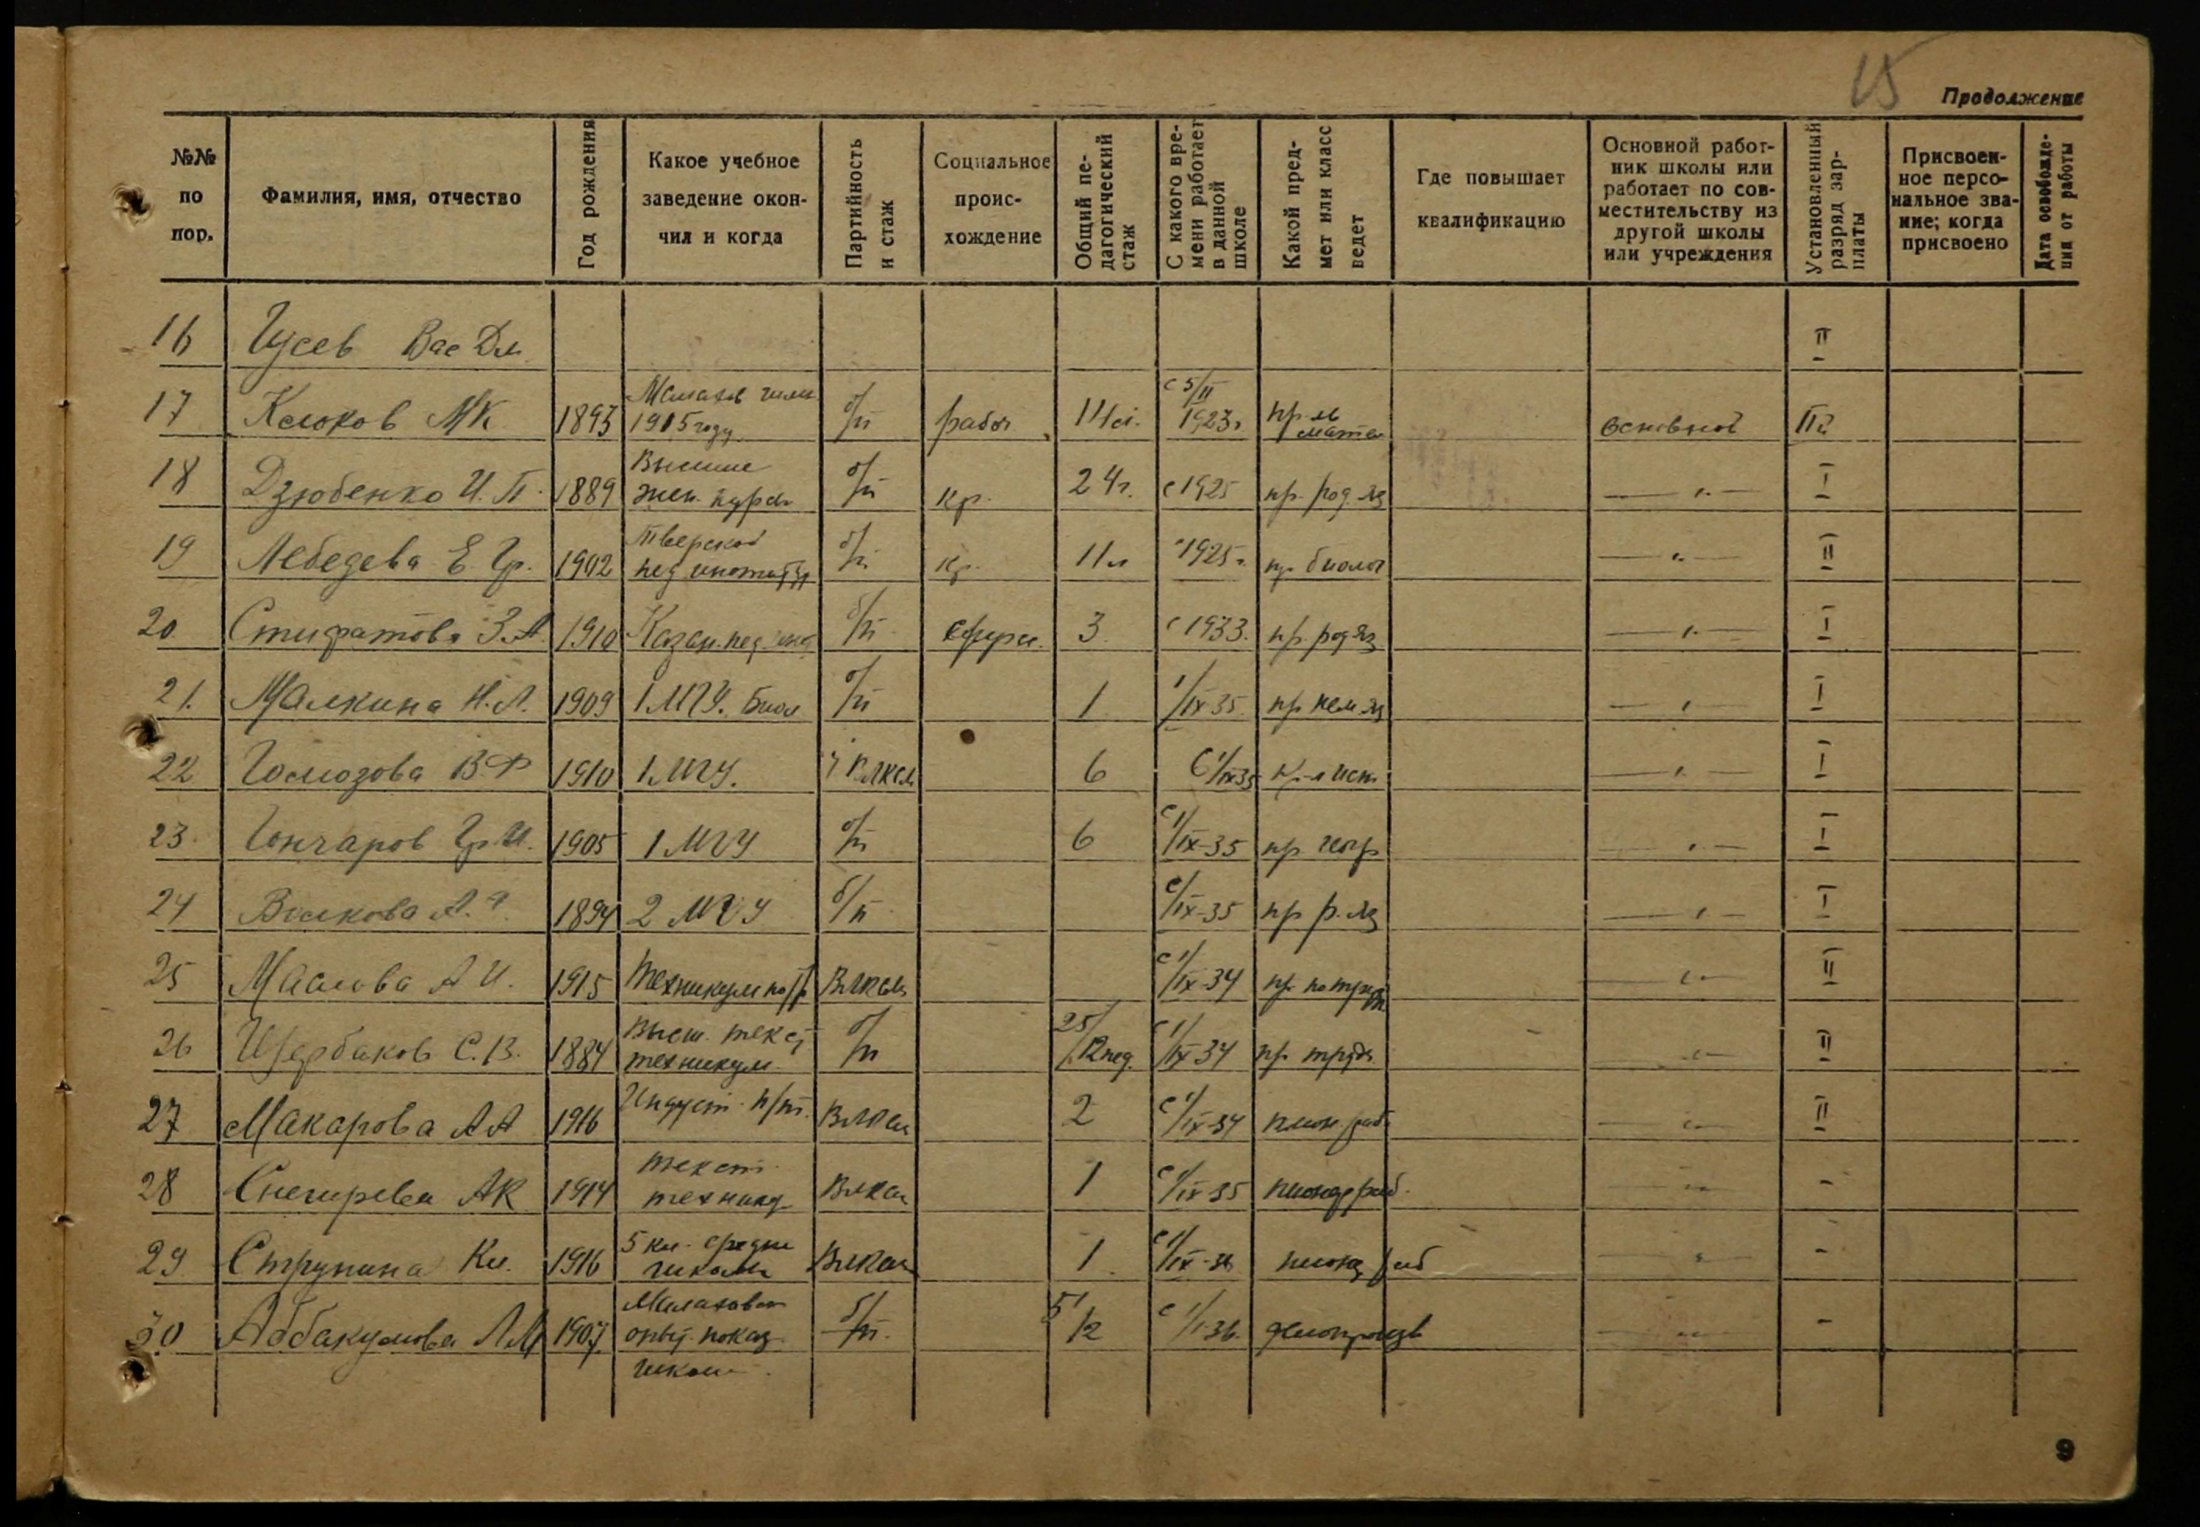 15
Продолжение
№№ по пор.
Фамилия, имя, отчество
Год рождения
Какое учебное заведение окончил и когда
Партийность и стаж
Социальное происхождение
Общий педагогический стаж
С какого времени работает в данной школе
Какой предмет или класс ведет
Где повышает квалификацию
Основной работник школы или работает по совместительству из другой школы или учреждения
Установленный разряд зарплаты
Присвоенное персональное звание; когда присвоено
Дата освобождения от работы
16 Гусев Вас Дм II
17 Клюков МК 1893 1915 году б/п рабоч 14 л. с 5/II 1923г пр-ль матем основной II
18 Дзюбенко И.П. 1889 Высшие жен. курсы б/п кр. 24г. с 1925 пр. род. яз — " — I
19 Лебедева Е. Гр. 1902 Тверской пед институт б/п кр. 11 л с 1925 г. пр биолог — " — II
20 З.А. 1910 Казан. пед. инст б/п 3 с 1933. пр. род яз — " — I
21. Малкина Н.Л. 1909 1 МГУ. Биол б/п 1 1/IX 35. пр нем яз — " — I
22 В.Ф 1910 1 МГУ. ВЛКСМ 6 С 1/IX 35 ист — " — I
23. Гончаров Гр И. 1905 1 МГУ б/п 6 с 1/IX-35 пр геогр — " — I
24 Волкова А. 1894 2 МГУ б/п с 1/IX-35 пр р. яз — " — I
25 Маслова А И. 1915 Техникум ВЛКСМ с 1/IX-34 пр по труду — " — II
26 Щербаков С.В. 1884 Высш. текст техникум б/п 25/12 пед. с 1/IX-34 пр труда — " — II
27 Макарова А А 1916 Индуст. ВЛКСМ 2 с 1/IX-34 пион. раб — " — II
28 Снегирева АК 1914 текст. технику ВЛКСМ 1 с 1/IX-35 пионер раб. — " — -
29 Струнина Кл. 1916 5 кл. средн школы ВЛКСМ 1 с 1/IX-36 пионер раб — " — -
30 Аббакумова Л М 1907 Малаховск опыт. показ. школа б/п. 5 1/2 с 1/I-36. делопроизв — " — -
9